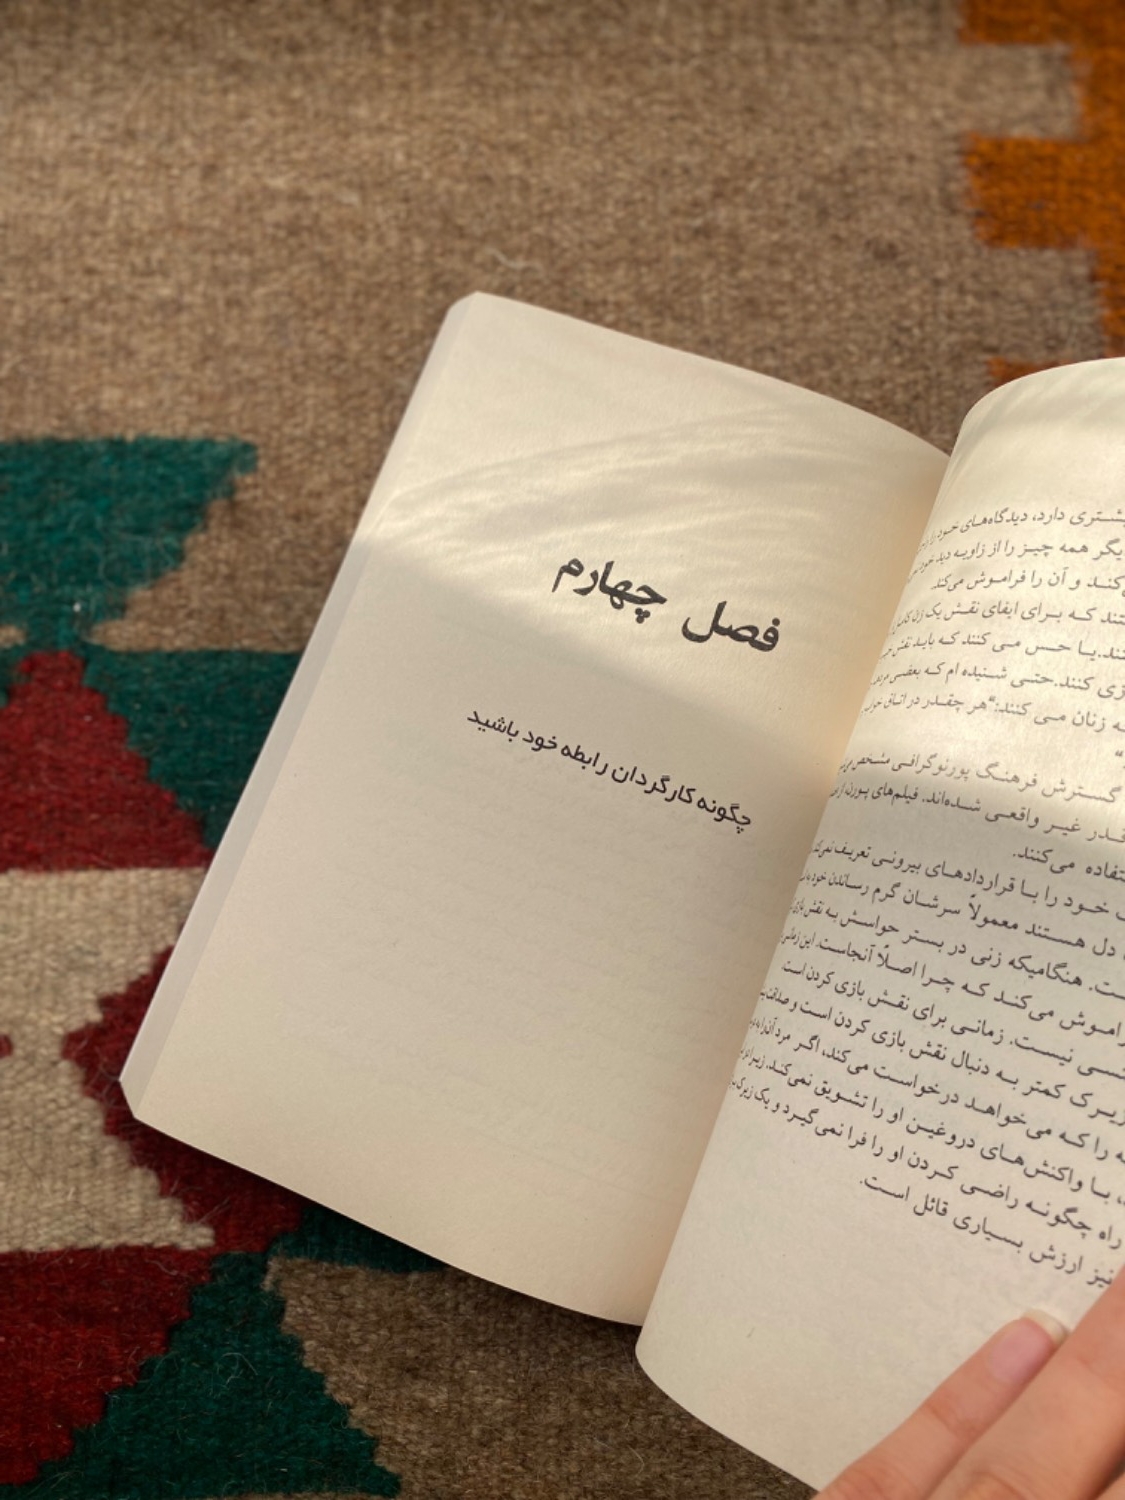 یشتری دارد، دیدگاه‌های خود را
یگر همه چیز را از زاویه دید
کند و آن را فراموش می‌کند.
تند که برای ایفای نقش یک زن
نند.یا حس می کنند که باید نقش
زی کنند.حتی شنیده ام که بعضی
ه زنان می کنند:"هر چقدر در اتاق
"
گسترش فرهنگ پورنوگرافی مشخص
قدر غیر واقعی شده‌اند. فیلم‌های پورن
تفاده می‌کنند.
خود را با قراردادهای بیرونی تعریف
دل هستند معمولاً سرشان گرم رساندن
ست. هنگامیکه زنی در بستر حواسش به نقش
راموش می‌کند که چرا اصلاً آنجاست. این
نسی نیست. زمانی برای نقش بازی کردن است.
زیرک کمتر به دنبال نقش بازی کردن است و
ه را که می‌خواهد درخواست می‌کند، اگر مرد آن را
، با واکنش‌های دروغین او را تشویق نمی‌کند.
راه چگونه راضی کردن او را فرا نمی‌گیرد و یک
نیز ارزش بسیاری قائل است.
فصل چهارم
چگونه کارگردان رابطه خود باشید